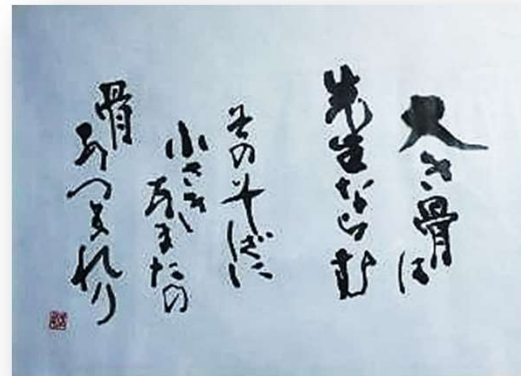 大き骨は
先生ならむ
そのそばに
小さき あまたの
骨 あつまれり